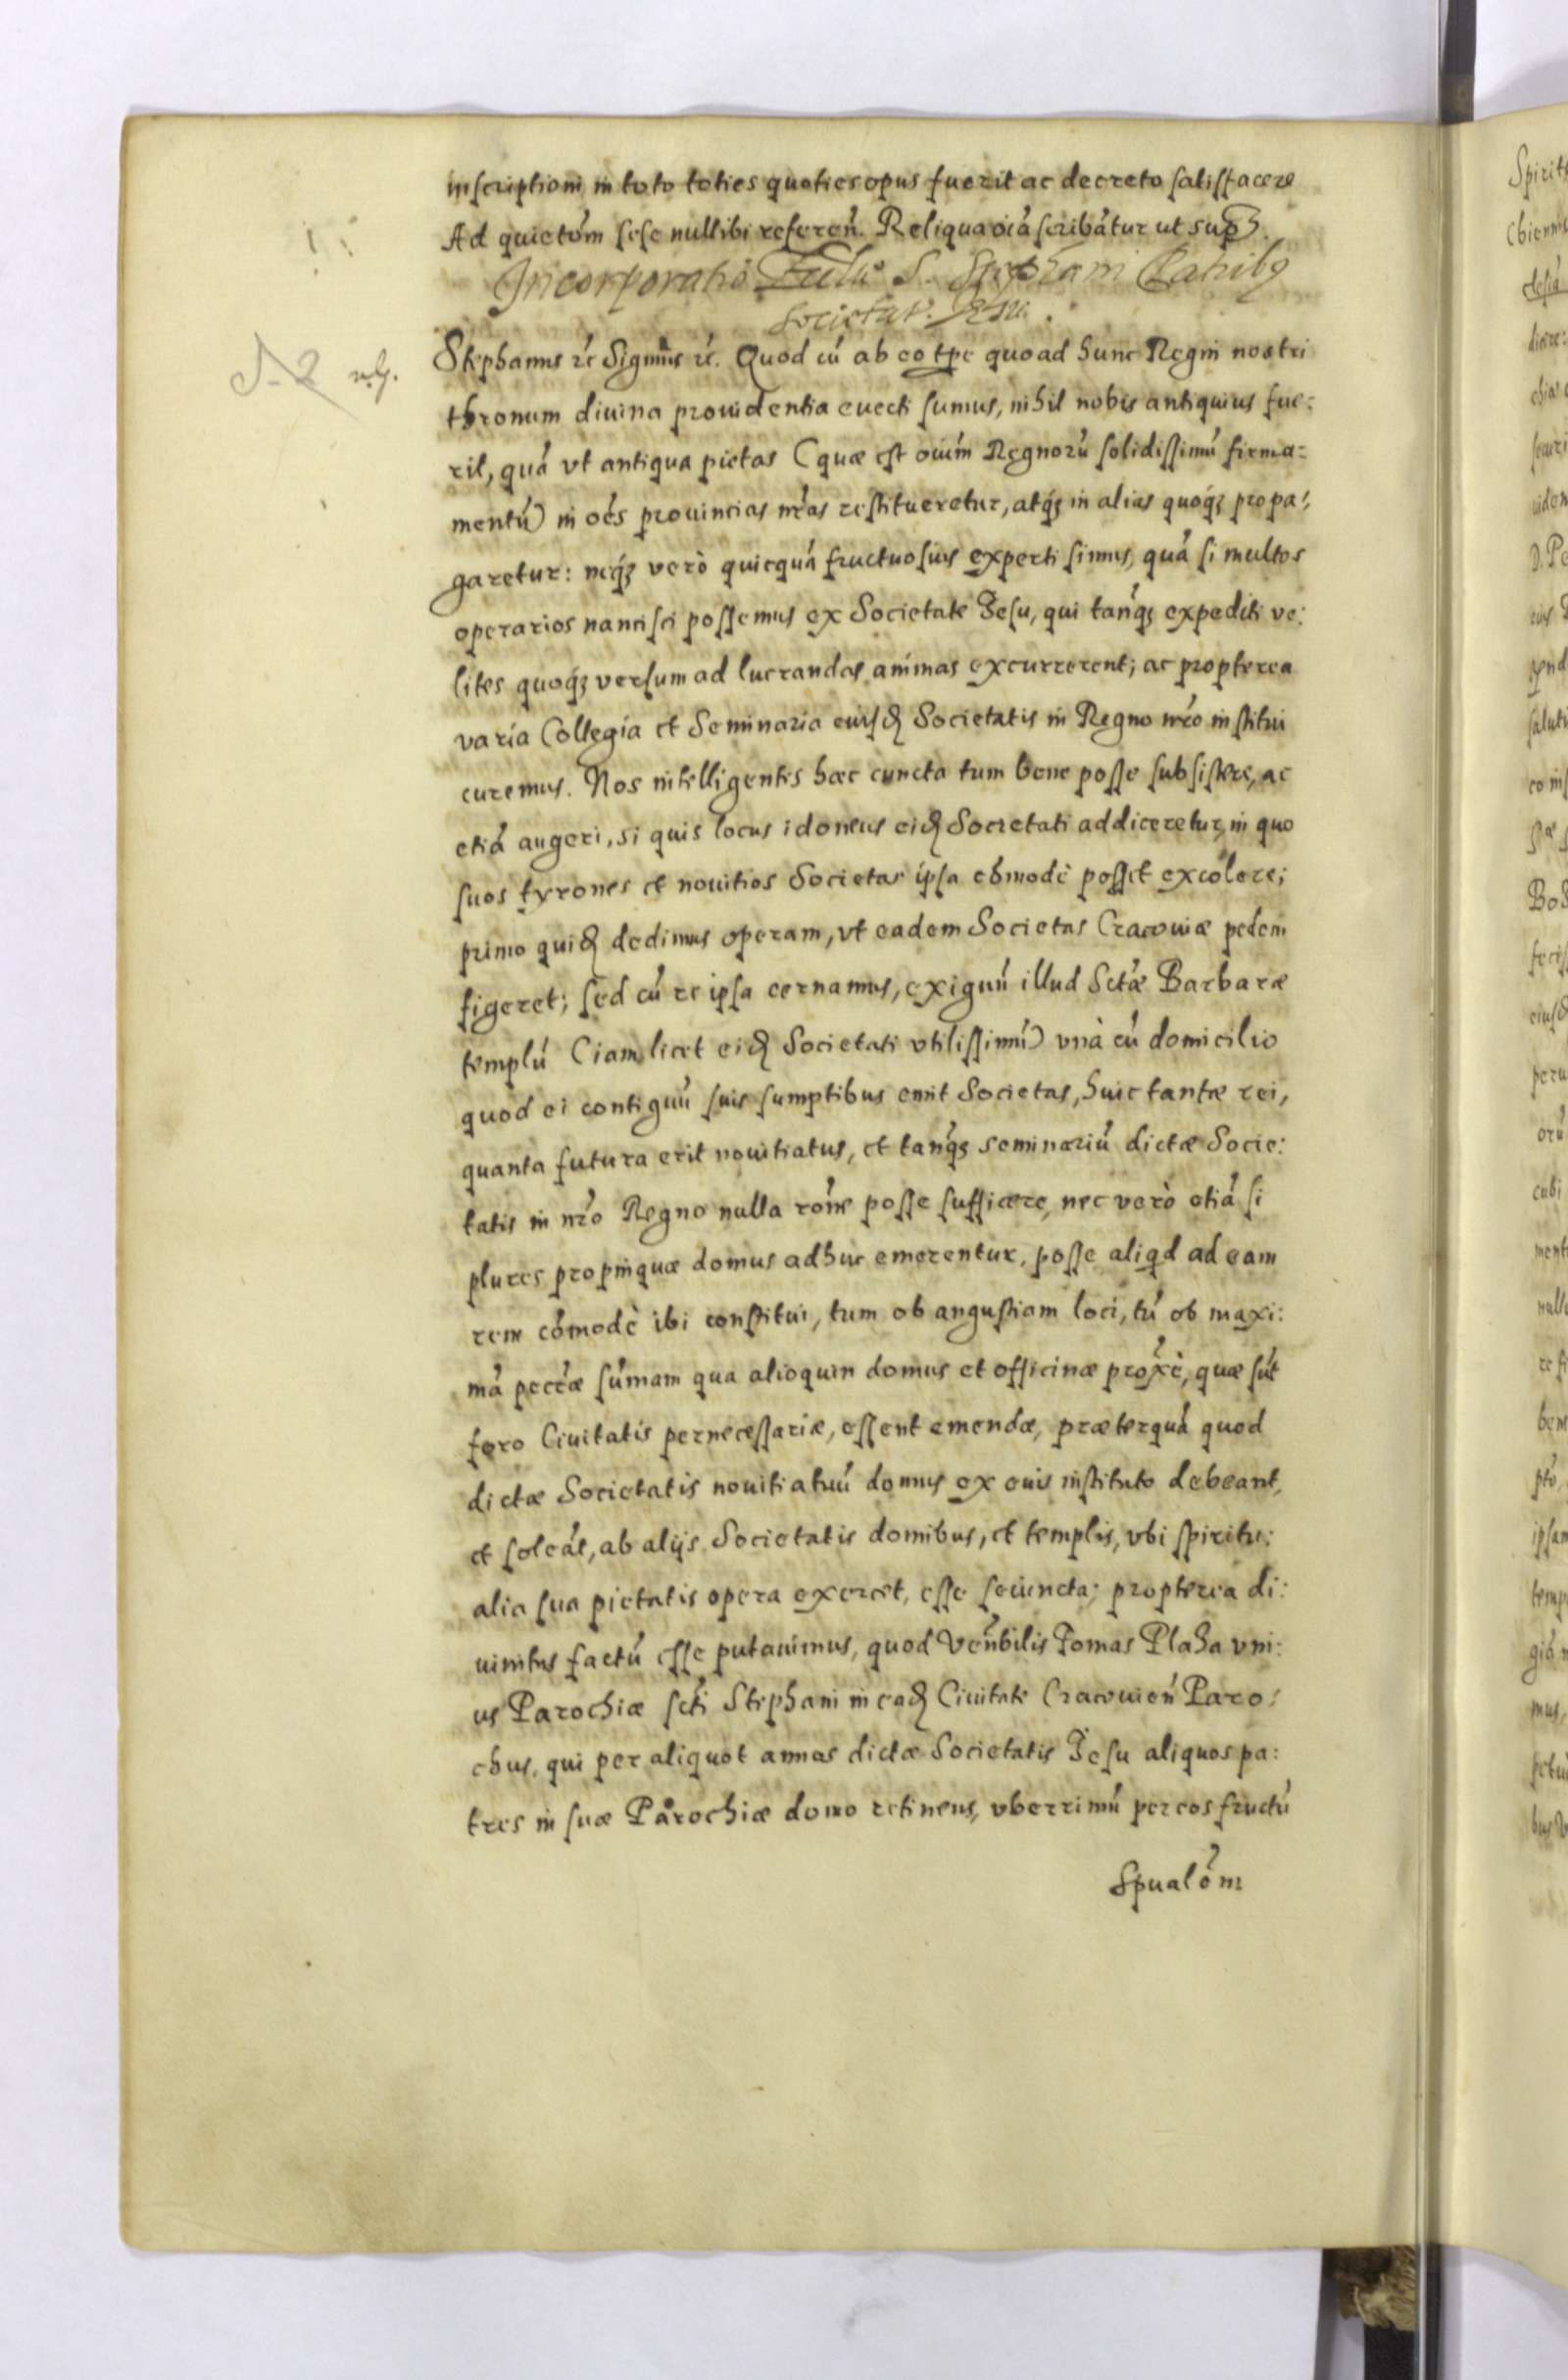 inscriptioni in toto toties quoties opus fuerit ac decreto satisfacere
Ad quietóm sese nullibi referen̄. Reliqua oı̃a scribãtur ut sup̃
Incorporatio S. Stephani Patribꝰ
Societat. Jesu.
Stephanus rc̃ Significamus rc̃. Quod cũ ab eo tp̃e quo ad hunc Regni nostri
thronum diuina prouidentia euecti sumus, nihil nobis antiquius fue:
rit, quã vt antiqua pietas (quæ est oiũm Regnorũ solidissimũ firma=
mentũ) in oẽs prouincias nr̃as restitueretur, atq́ꝫ in alias quoq́ꝫ propa:
garetur: neq́ꝫ verò quicquã fructuosius experti simus, quã si multos
operarios nancisci possemus ex Societate Jesu, qui tanq̃ꝫ expediti ve:
lites quoq́ꝫ versum ad lucrandas animas excurrerent; ac propterea
varia Collegia et Seminaria eiusdꝫ Societatis in Regno nr̃o institui
curemus. Nos intelligentes hæc cuncta tum bene posse subsistere, ac
etiã augeri, si quis locus idoneus eidꝫ Societati addiceretur, in quo
suos tyrones et nouitios Societas ipsa cõmodè possit excolere;
primo quidꝫ dedimus operam, vt eadem Societas Cracouiæ pedem
figeret; sed cũ re ipsa cernamus, exiguũ illud Sctæ̃ Barbaræ
templũ (iam licet eidꝫ Societati vtilissimũ) vnà cũ domicilio
quod ei contiguũ suis sumptibus emit Societas, huic tantæ rei,
quanta futura erit nouitiatus, et tanq̃ꝫ seminariũ dictæ Socie:
tatis in nr̃o Regno nulla rõne posse sufficere, nec verò etiã si
plures propinquæ domus adhuc emerentur, posse aliqd ad eam
rem cõmodè ibi constitui, tum ob angustiam loci, tũ ob maxi:
mã pec̃ræ sũmam qua alioquin domus et officinæ prox̃è, quæ sũt
foro Ciuitatis pernecessariæ, essent emendæ, præterquã quod
dictæ Societatis nouitiatuũ domus ex eius instituto debeant,
et soleãt, ab alijs Societatis domibus, et templis, vbi spiritu:
alia sua pietatis opera exercet, esse seiuncta; propterea di:
uinitus factũ esse putauimus, quod Veñbilis Tomas Plaza vni:
us Parochiæ scti̇̃ Stephani in eadꝫ Ciuitate Cracouien̄ Paro:
chus, qui per aliquot annos dictæ Societatis Jesu aliquos pa:
tres in suæ Parochiæ domo retinens, vberrimũ per eos fructũ
Spualẽm